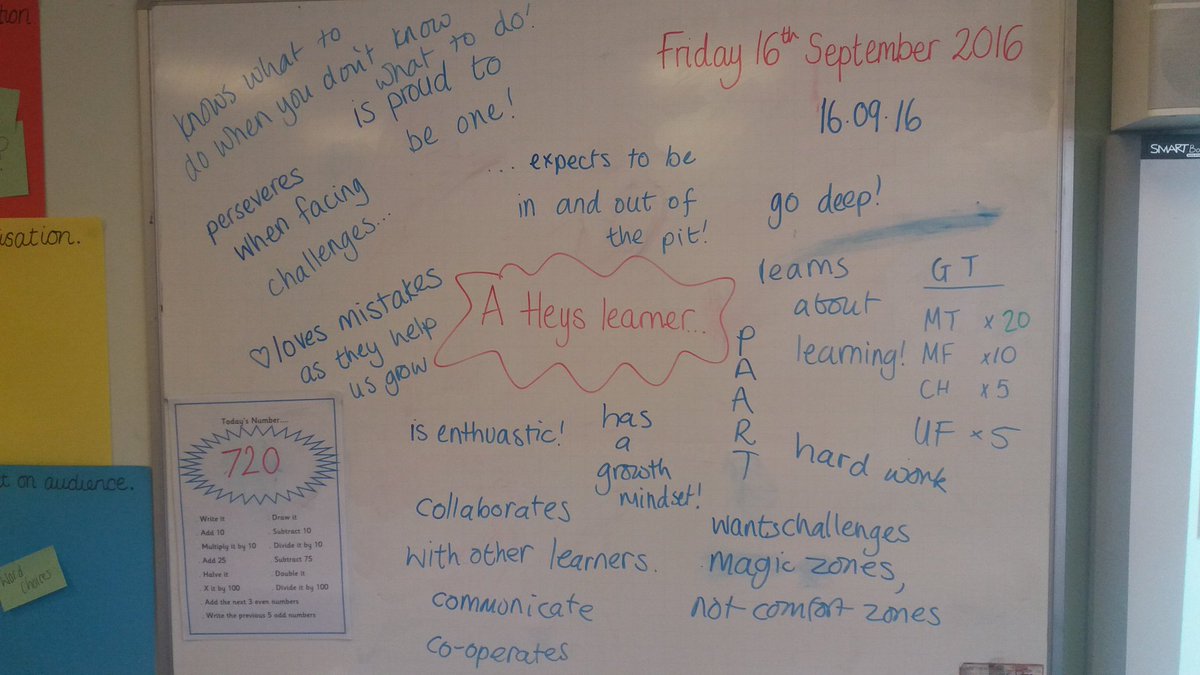 tion.
isation.
t on audience.
word
choices
knows what to
do when you don't know
what to do!
is proud to
be one!
Friday 16th September 2016
16.09.16
SMART
perseveres
when facing
challenges...
... expects to be
in and out of
the pit!
go deep!
♡loves mistakes
as they help
us grow
A Heys learner...
P
A
A
R
T
learns
about
learning!
GT
MT x 20
MF x10
CH x 5
UF x 5
Today's Number....
720
. Write it . Draw it
. Add 10 . Subtract 10
. Multiply it by 10 . Divide it by 10
. Add 25 . Subtract 75
. Halve it . Double it
. X it by 100 . Divide it by 100
. Add the next 3 even numbers
. Write the previous 5 odd numbers
is enthuastic!
has
a
growth
mindset!
hard work
collaborates
with other learners.
communicate
co-operates
wants challenges
magic zones,
not comfort zones